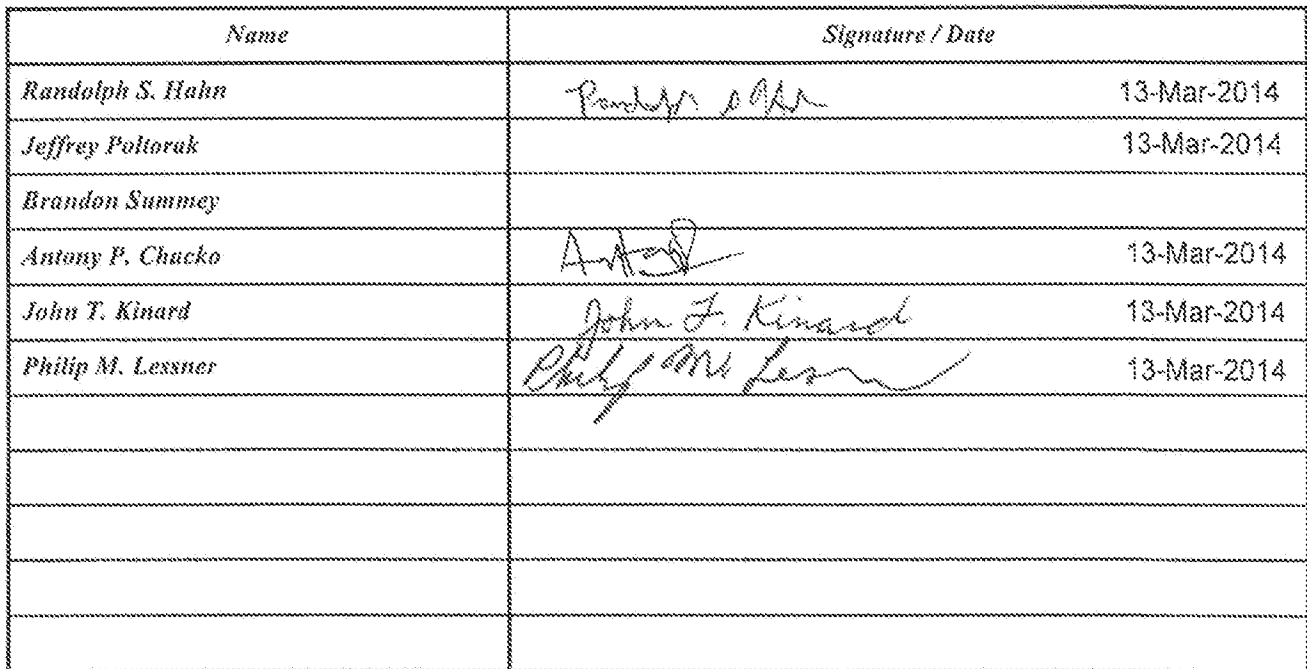 Name Signature / Date
Randolph S. Hahn Randolph S Hahn 13-Mar-2014
Jeffrey Poltorak 13-Mar-2014
Brandon Summey
Antony P. Chacko 13-Mar-2014
John T. Kinard John T. Kinard 13-Mar-2014
Philip M. Lessner Philip M Lessner 13-Mar-2014